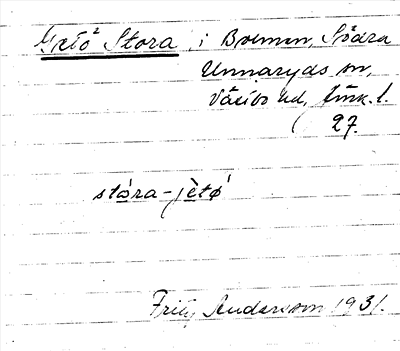 Getö Stora i Bolmen, Södra
Unnaryds sn,
Västbo hd, Jönk. l.
27.
stóra-jètǿ
Fritz Andersson 1931.